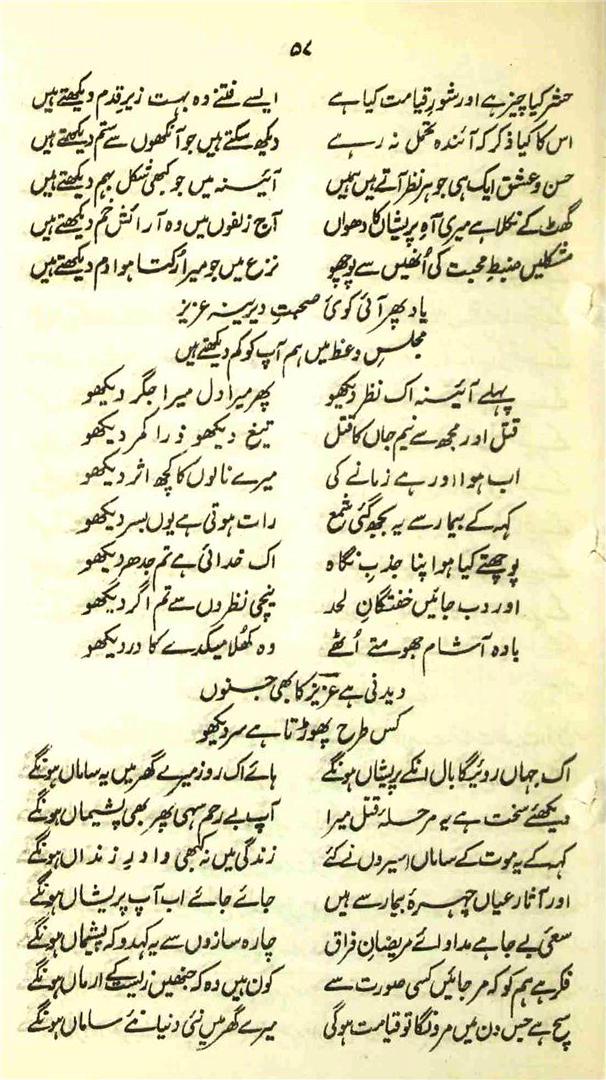 ۵۷
حشر کیا چیز ہے اور شورِ قیامت کیا ہے ایسے فتنے وہ بہت زیرِ قدم دیکھتے ہیں
اس کا کیا ذکر کہ آئندہ تحمل نہ رہے دیکھ سکتے ہیں جو آنکھوں سے ستم دیکھتے ہیں
حسن و عشق ایک ہی جوہر نظر آتے ہیں ہمیں آئینہ میں جو کبھی شکل بہم دیکھتے ہیں
گھٹ کے نکلا ہے میری آہِ پریشاں کا دھواں آج زلفوں میں وہ آرائشِ خم دیکھتے ہیں
مشکلیں ضبطِ محبت کی اُنھیں سے پوچھو نزع میں جو میرا رُکتا ہوا دم دیکھتے ہیں
یاد پھر آئی کوئی صحبتِ دیرینہ عزیز
مجلسِ وعظ میں ہم آپ کو کم دیکھتے ہیں
پہلے آئینہ اک نظر دیکھو پھر میرا دل میرا جگر دیکھو
قتل اور مجھ سے نیم جاں کا قتل تیغ دیکھو ذرا کمر دیکھو
اب ہوا اور ہے زمانے کی میرے نالوں کا کچھ اثر دیکھو
کہہ کے بیمار سے یہ بجھ گئی شمع رات ہوتی ہے یوں بسر دیکھو
پوچھتے کیا ہو اپنا جذبِ نگاہ اک خدائی ہے تم جدھر دیکھو
اور دب جائیں خفتگانِ لحد نیچی نظروں سے تم اگر دیکھو
بادہ آشام جھومتے اُٹھے وہ کھُلا میکدے کا در دیکھو
دیدنی ہے عزیز کا بھی جنوں
کس طرح پھوڑتا ہے سر دیکھو
اک جہاں روئیگا بال انکے پریشاں ہونگے ہائے اک روز میرے گھر میں یہ ساماں ہونگے
دیکھئے سخت ہے یہ مرحلۂ قتل میرا آپ بے رحم سہی پھر بھی پشیماں ہونگے
کہہ کے یہ موت کے ساماں اسیروں نے کئے زندگی میں نہ کبھی وا درِ زنداں ہونگے
اور آثار عیاں چہرۂ بیمار سے ہیں جائے جائے اب آپ پریشاں ہونگے
سعی بے جا ہے مداوائے مریضانِ فراق چارہ سازوں سے یہ کہدو کہ پشیماں ہونگے
فکر ہے ہم کو کہ مر جائیں کسی صورت سے کون ہیں وہ کہ جنھیں زیست کے ارماں ہونگے
سچ ہے جس دن میں مرونگا تو قیامت ہوگی میرے گھر میں نئی دنیا نئے ساماں ہونگے